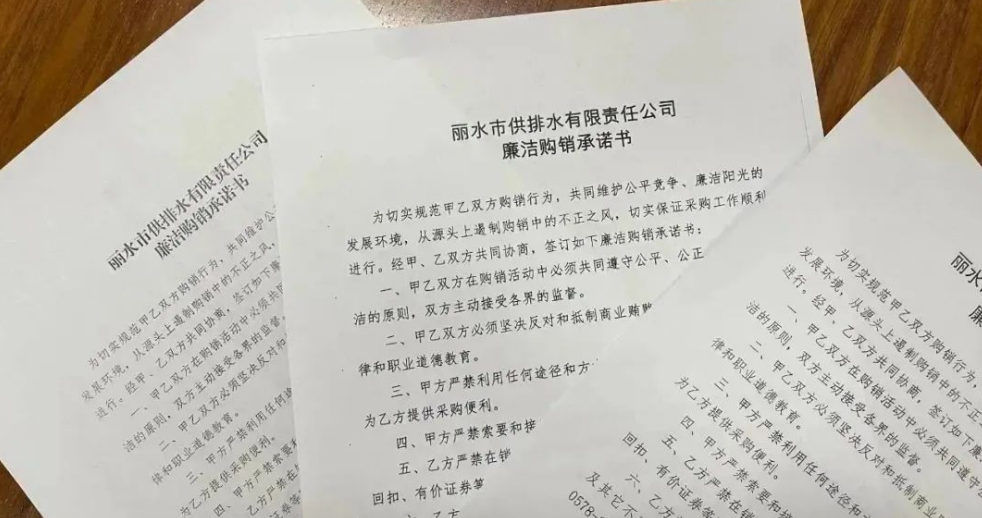 丽水市供排水有限责任公司
廉洁购销承诺书
为切实规范甲乙双方购销行为，共同维护公
发展环境，从源头上遏制购销中的不正之风，
进行。经甲、乙双方共同协商，签订如下廉
一、甲乙双方在购销活动中必须共同
洁的原则，双方主动接受各界的监督
二、甲乙双方必须坚决反对和
律和职业道德教育。
三、甲方严禁利用任何途
为乙方提供采购便利。
四、甲方严禁索要
五、乙方严禁在
回扣、有价证券
丽水市供排水有限责任公司
廉洁购销承诺书
为切实规范甲乙双方购销行为，共同维护公平竞争、廉洁阳光的
发展环境，从源头上遏制购销中的不正之风，切实保证采购工作顺利
进行。经甲、乙双方共同协商，签订如下廉洁购销承诺书：
一、甲乙双方在购销活动中必须共同遵守公平、公正
洁的原则，双方主动接受各界的监督。
二、甲乙双方必须坚决反对和抵制商业贿
律和职业道德教育。
三、甲方严禁利用任何途径和方
为乙方提供采购便利。
四、甲方严禁索要和接
五、乙方严禁在销
回扣、有价证券等
六、乙方
丽水
为切实规范甲乙双方购销行为，
发展环境，从源头上遏制购销中的不正
进行。经甲、乙双方共同协商，签订如下廉
一、甲乙双方在购销活动中必须共同遵守
洁的原则，双方主动接受各界的监督。
二、甲乙双方必须坚决反对和抵制商业
律和职业道德教育。
三、甲方严禁利用任何途径和
为乙方提供采购便利。
四、甲方严禁索要和接
五、乙方严禁在销
回扣、有价证券等
六、乙方
及其它不
0578-